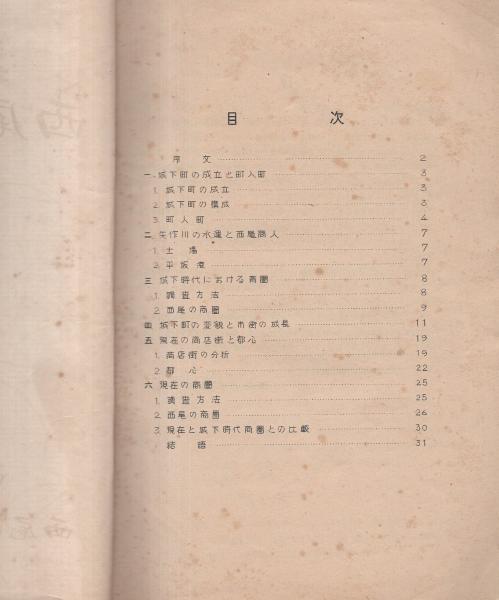 目 次
序 文 2
一. 城下町の成立と町人町 3
1. 城下町の成立 3
2. 城下町の構成 3
3. 町人町 4
二. 矢作川の水運と西尾商人 7
1. 土場 7
2. 平坂港 7
三 城下時代における商圏 8
1. 調査方法 8
2. 西尾の商圏 9
四 城下町の変貌と市街の成長 11
五 現在の商店街と都心 19
1. 商店街の分析 19
2. 都心 22
六 現在の商圏 25
1. 調査方法 25
2. 西尾の商圏 26
3. 現在と城下時代商圏との比較 30
結 語 31